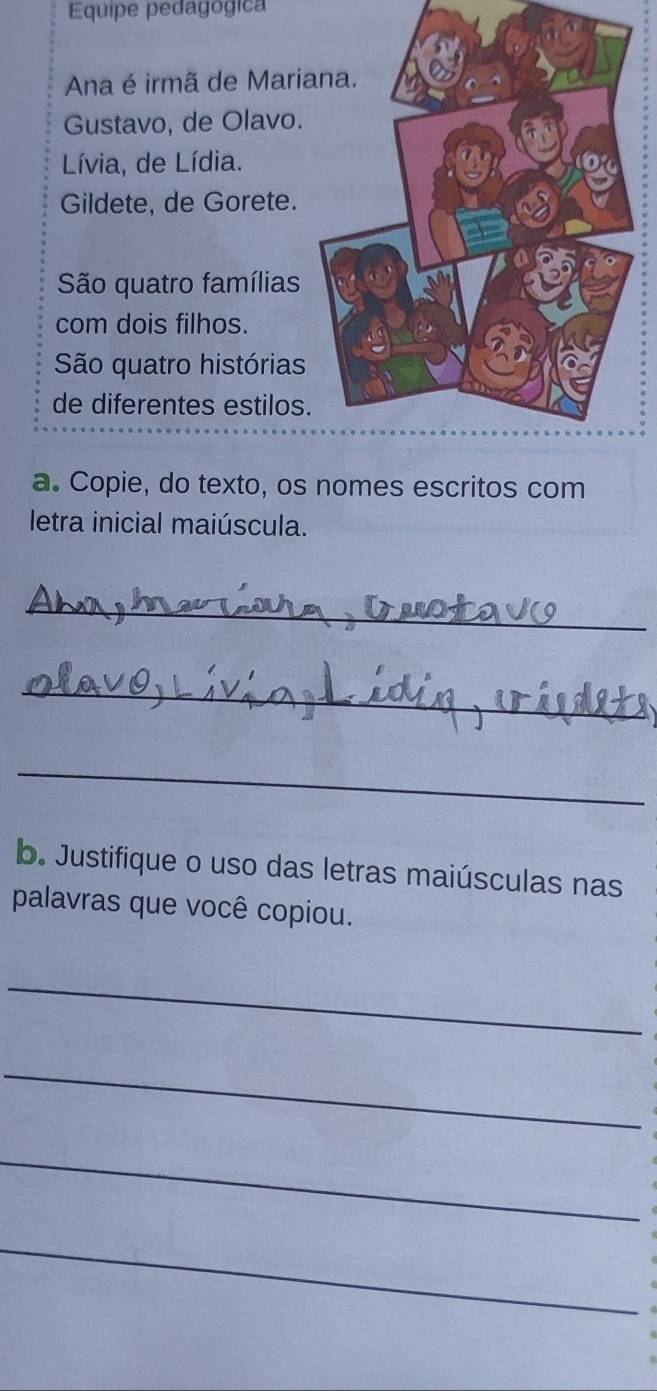 Equipe pedagógica
Ana é irmã de Mariana.
Gustavo, de Olavo.
Lívia, de Lídia.
Gildete, de Gorete.
São quatro famílias
com dois filhos.
São quatro histórias
de diferentes estilos.
a. Copie, do texto, os nomes escritos com
letra inicial maiúscula.
Ana, mariana, Gustavo
olavo, Lívia, Lídia, Gildete,
b. Justifique o uso das letras maiúsculas nas
palavras que você copiou.